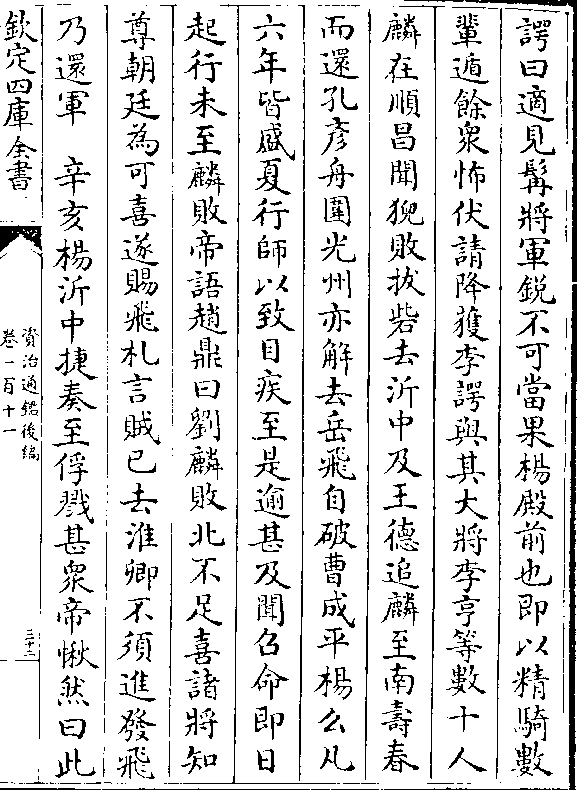 諤曰適見髯將軍鋭不可當果楊殿前也即以精騎數
輩遁餘衆怖伏請降獲李諤與其大將李亨等數十人
麟在順昌聞猊敗拔砦去沂中及王德追麟至南壽春
而還孔彦舟圍光州亦解去岳飛自破曹成平楊么凡
六年皆盛夏行師以致目疾至是逾甚及聞召命即日
起行未至麟敗帝語趙鼎曰劉麟敗北不足喜諸將知
尊朝廷為可喜遂賜飛札言賊已去淮卿不須進發飛
乃還軍　辛亥楊沂中捷奏至俘戮甚衆帝愀然曰此
欽定四庫全書
資治通鑑後編
卷一百十一
三十二